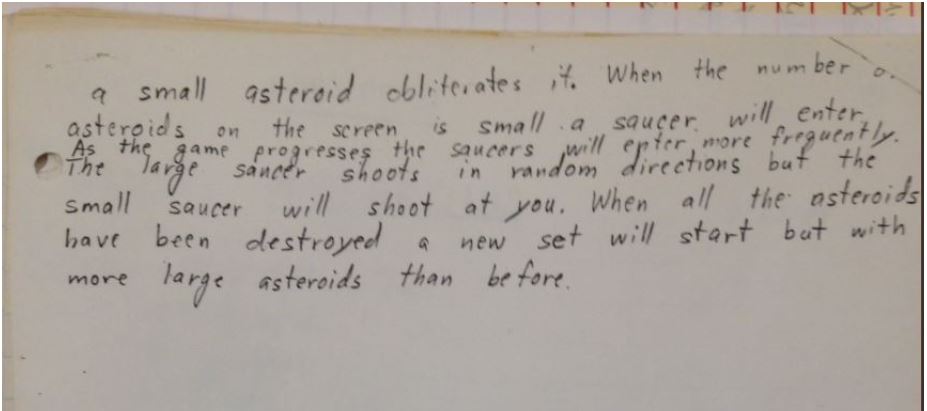 a small asteroid obliterates it. When the number o
asteroids on the screen is small a saucer will enter.
As the game progresses the saucers will enter more frequently.
The large saucer shoots in random directions but the
small saucer will shoot at you. When all the asteroids
have been destroyed a new set will start but with
more large asteroids than before.